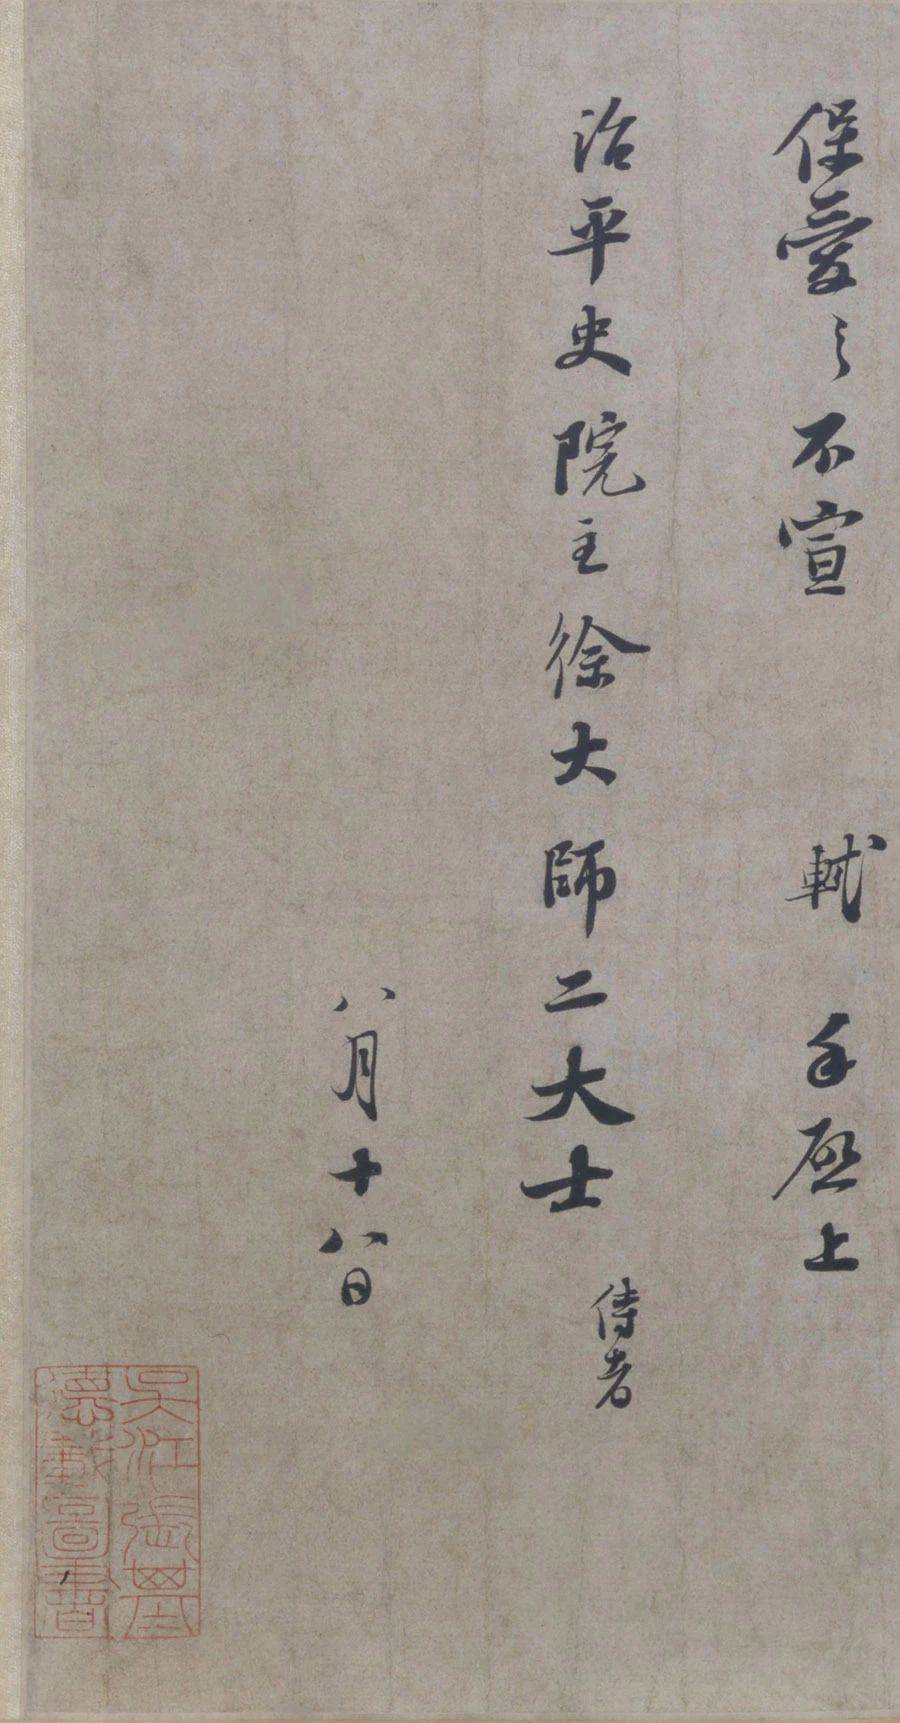 保愛之不宣　軾　手啟上
治平史院主徐大師二大士　侍者
八月十八日
吳江張基
德載圖書